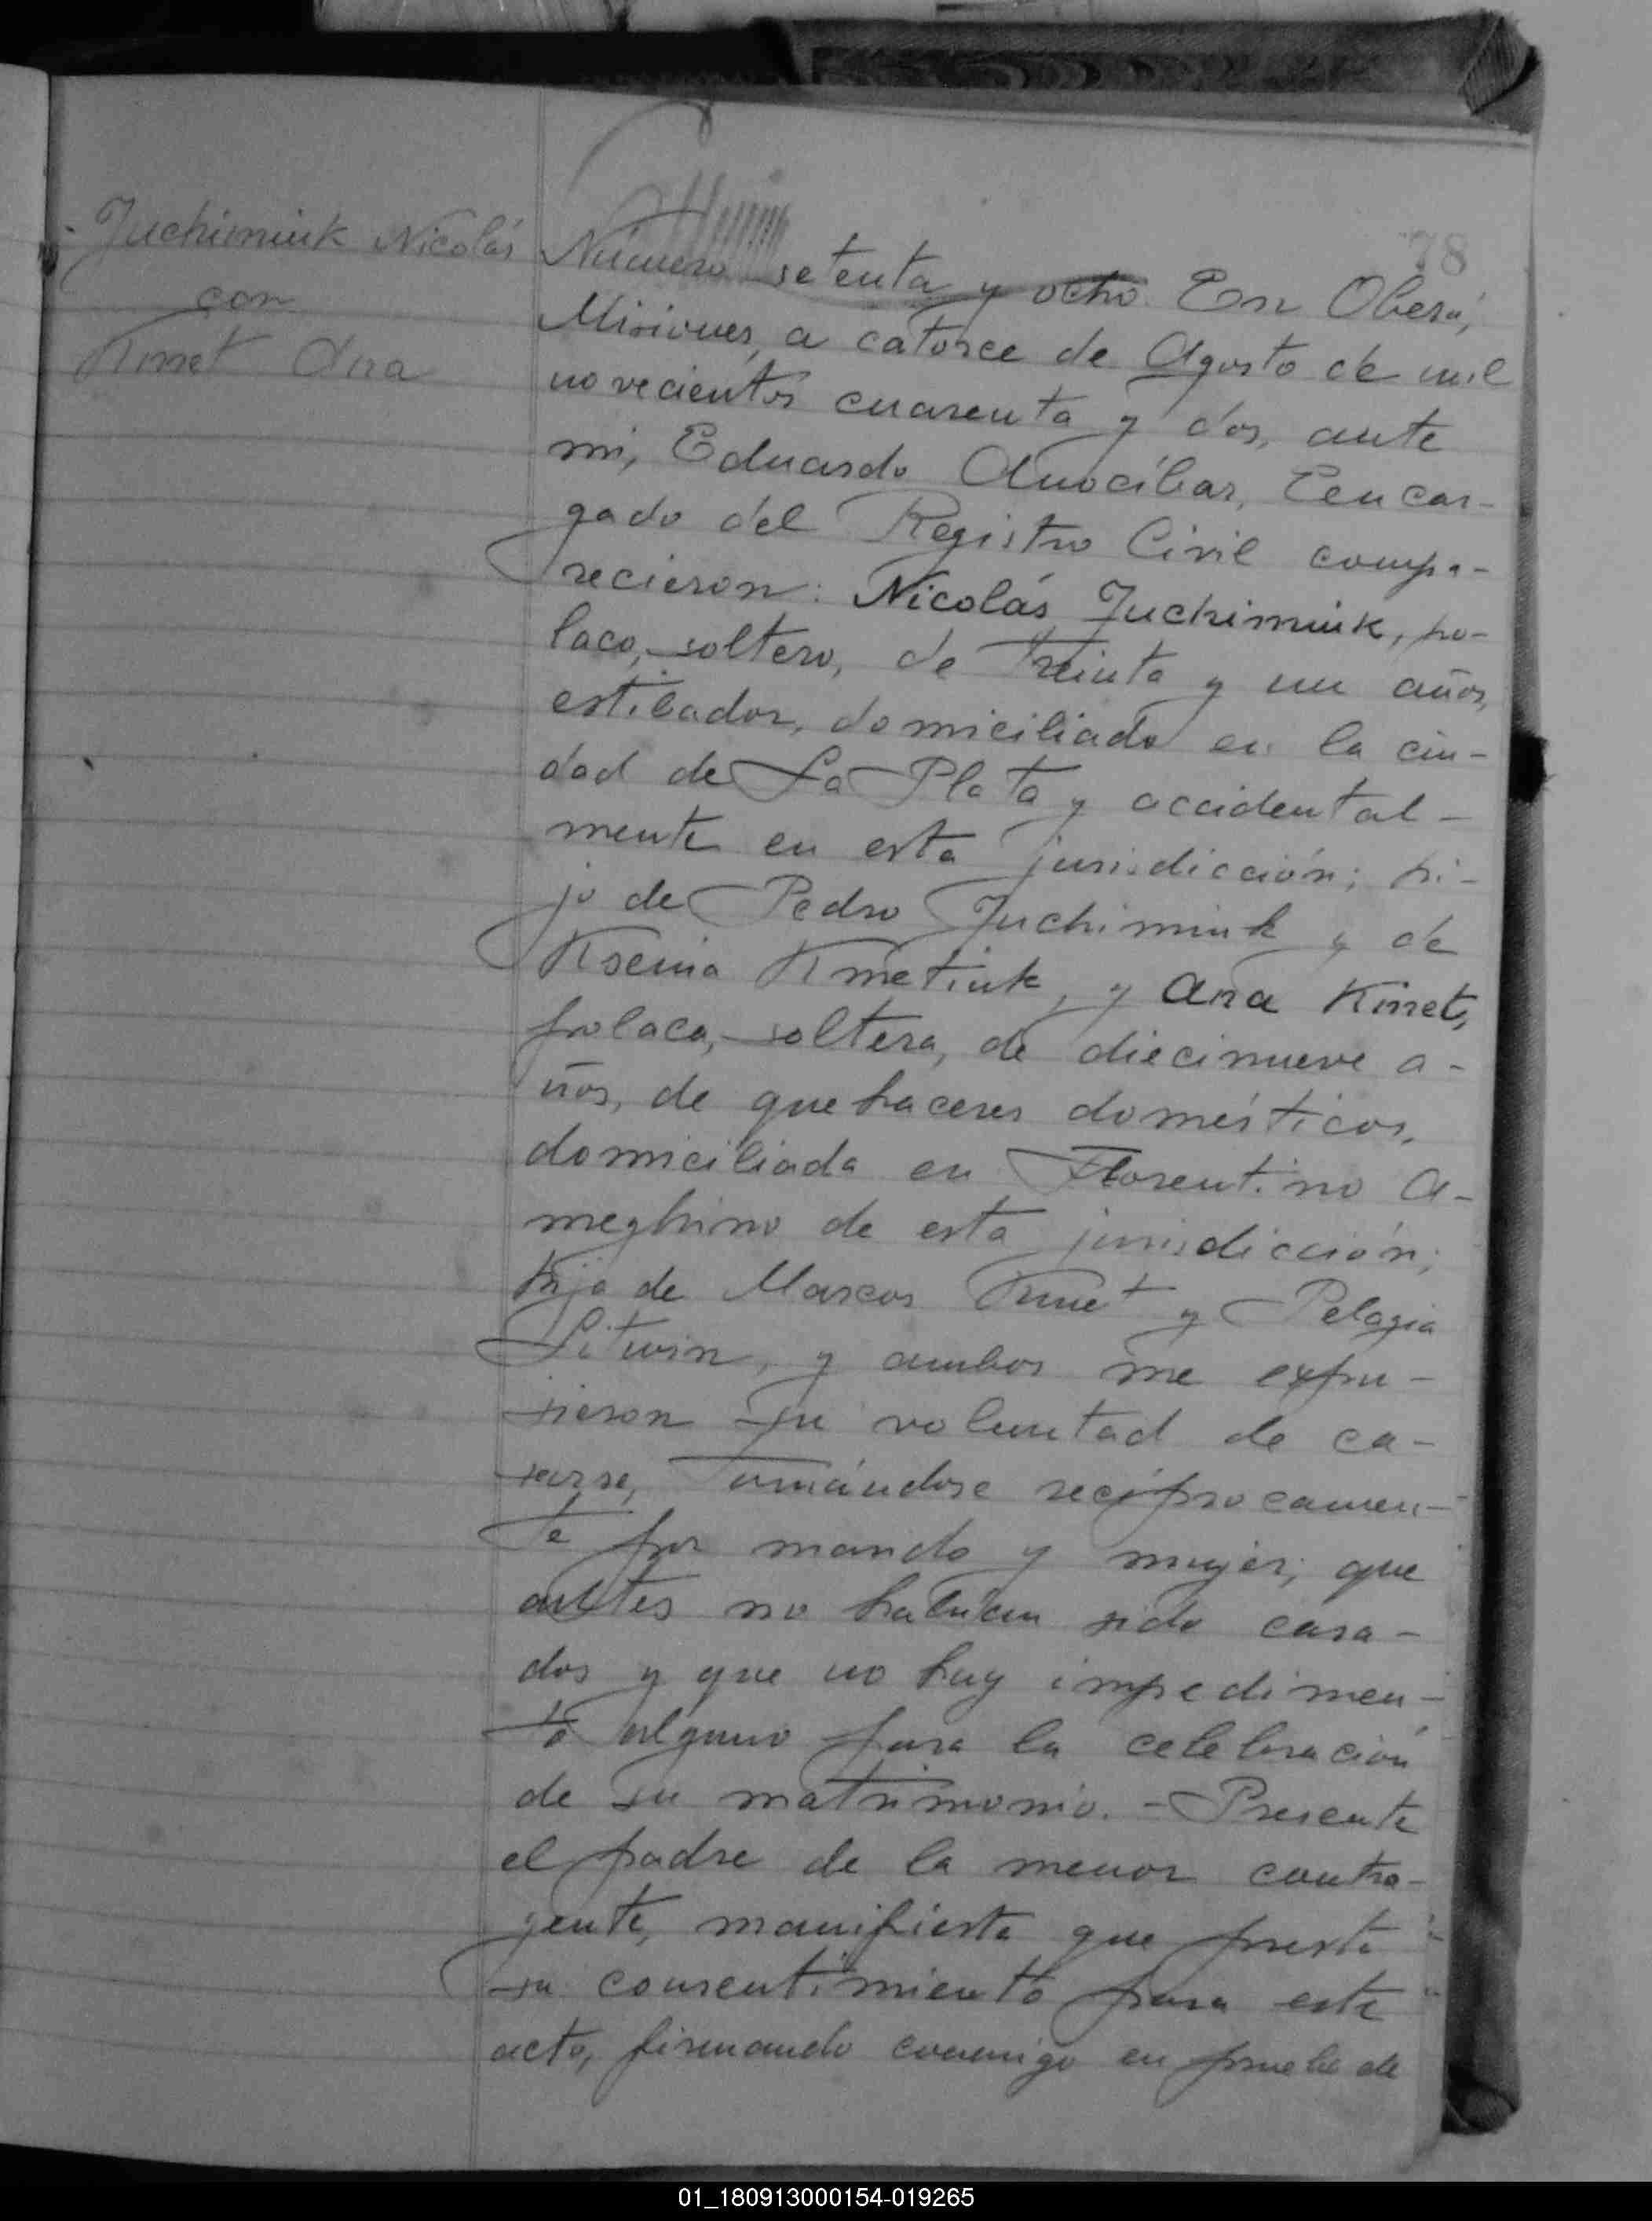 Juchimiuk Nicolás
con
Kmet Ana
78
Número setenta y ocho. En Oberá,
Misiones, a catorce de Agosto de mil
novecientos cuarenta y dos, ante
mi, Eduardo Anocíbar, Encar-
gado del Registro Civil compa-
recieron: Nicolás Juchimiuk, po-
laco, soltero, de treinta y un años,
estibador, domiciliado en la ciu-
dad de La Plata y accidental-
mente en esta jurisdicción; hi-
jo de Pedro Juchimiuk y de
Ksenia Kmetiuk, y Ana Kmet,
polaca, soltera, de diecinueve a-
ños, de quehaceres domésticos,
domiciliada en Florentino A-
meghino de esta jurisdicción;
hija de Marcos Kmet y Pelagia
Litwin, y ambos me expu-
sieron su voluntad de ca-
sarse, tomándose recíprocamen-
te por marido y mujer; que
antes no habían sido casa-
dos y que no hay impedimen-
to alguno para la celebración
de su matrimonio. - Presente
el padre de la menor contra-
yente, manifiesta que presta
su consentimiento para este
acto, firmando conmigo en prueba de
01_180913000154-019265